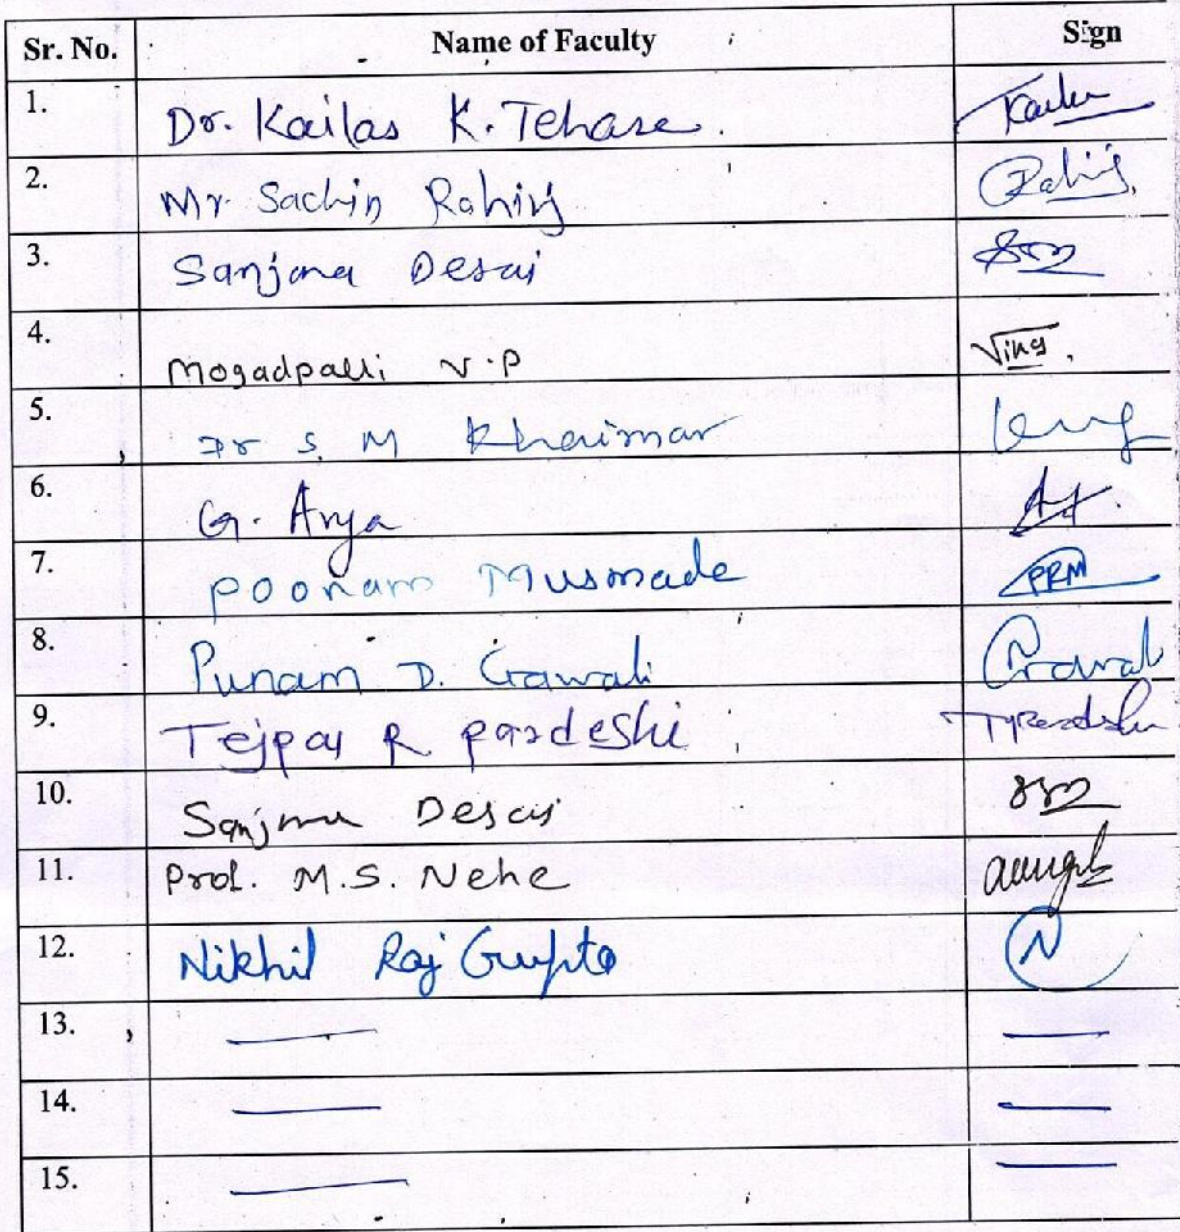 Sr. No. Name of Faculty Sign
1. Dr. Kailas K. Tehare.
2. Mr. Sachin Rohinj
3. Sanjana Desai
4. Mogadpalli V.P
5. Dr S. M Khairnar
6. G. Arya
7. Poonam Musmade PRM
8. Punam D. Gawali Gawali
9. Tejpal R pardeshi
10. Sanjana Desai
11. Prof. M.S. Nehe
12. Nikhil Raj Gupta N
13.
14.
15.